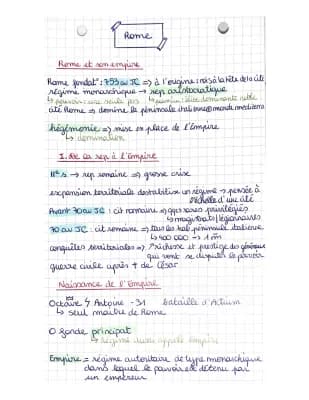 Rome
Rome et son empire
Rome fondat° : 753 av JC => à l'origine : rois à la tête de la cité
régime monarchique -> rep aristocratique
↳ pouvoir : une seule pers ↳ pouvoir : élite dominante noble
cité Rome => domine la péninsule italienne monde méditerra
hégémonie => mise en place de l'Empire
↳ domination
I. De la rep à l'Empire
II e s -> rep romaine => grosse crise
expansion territoriale destabilise un régime -> pensée à
l'échelle d'une cité
Avant 70 av JC : cit romaine => privilégiés
↳ magistrats / légionnaires
70 av JC : cit romaine => tous les hab péninsule italienne
↳ 400 000 -> 1 m
conquêtes territoriales => richesse et prestige des généraux
qui vont se disputer le pouvoir
guerre civile après † de César
Naissance de l'Empire
Octave Antoine - 31 bataille d'Actium
↳ seul maître de Rome
O fonde principat
↳ régime aussi appelé Empire
Empire = régime autoritaire de type monarchique
dans lequel le pouvoir est détenu par
un empereur